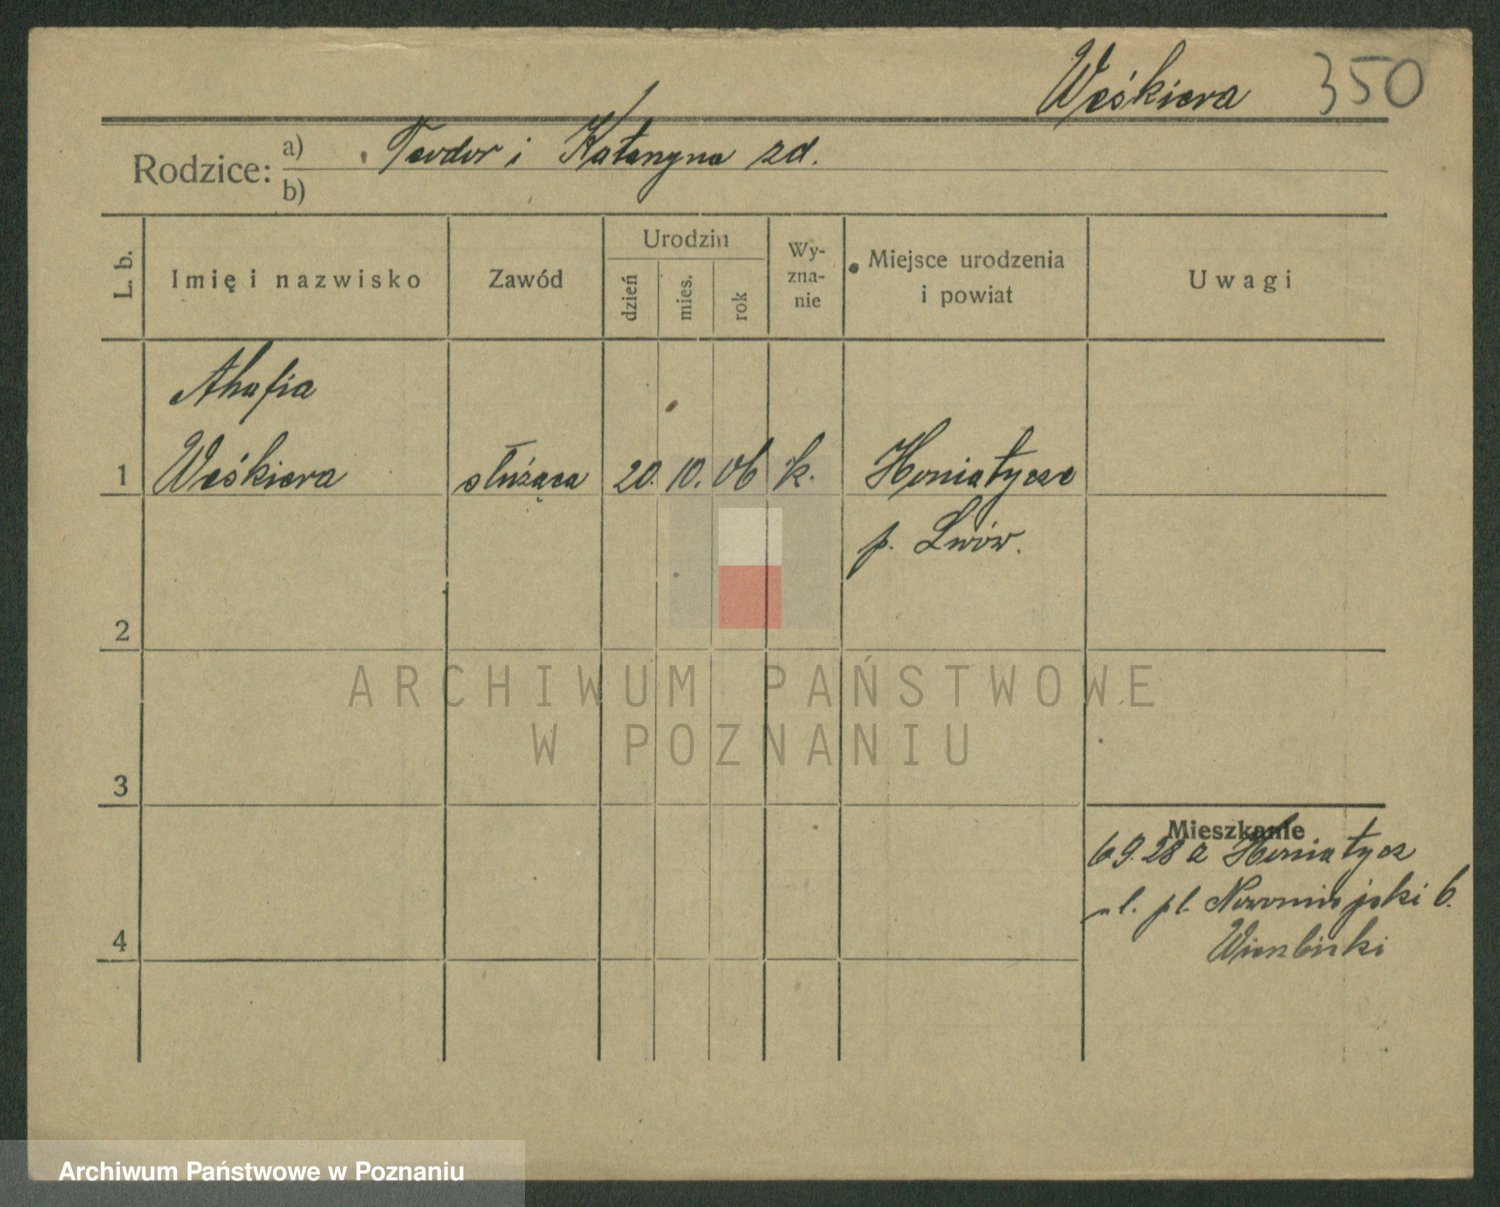 Weśkiera 350
Rodzice: a) Teodor i Katarzyna zd.
b)
L. b. Imię i nazwisko Zawód Urodzin dzień mies. rok Wyznanie Miejsce urodzenia i powiat Uwagi
Ahafia
1 Weśkiera służąca 20. 10. 06 k. Honiatycze
p. Lwów.
2
ARCHIWUM PAŃSTWOWE
W POZNANIU
3
Mieszkanie
6 9. 28 z Honiatycz
ul. pl. Nowomiejski 6.
4
Archiwum Państwowe w Poznaniu